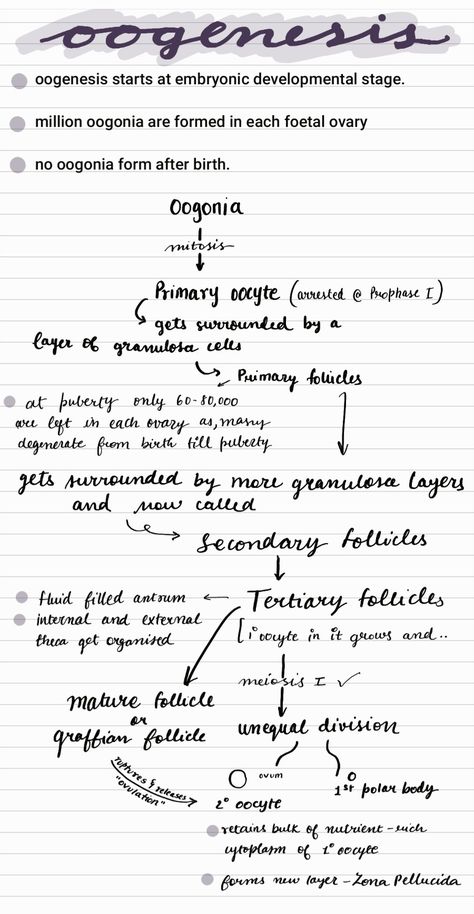 oogenesis
oogenesis starts at embryonic developmental stage.
million oogonia are formed in each foetal ovary
no oogonia form after birth.
Oogonia
mitosis
Primary oocyte (arrested @ Prophase I)
gets surrounded by a
layer of granulosa cells
Primary follicles
at puberty only 60-80,000
are left in each ovary as, many
degenerate from birth till puberty
gets surrounded by more granulosa layers
and now called
secondary follicles
Tertiary follicles
fluid filled antrum
internal and external
theca get organised
[1° oocyte in it grows and..
meiosis I ✓
mature follicle
or
graffian follicle
unequal division
ruptures & releases
"ovulation"
ovum
2° oocyte
1st polar body
retains bulk of nutrient-rich
cytoplasm of 1° oocyte
forms new layer - Zona Pellucida